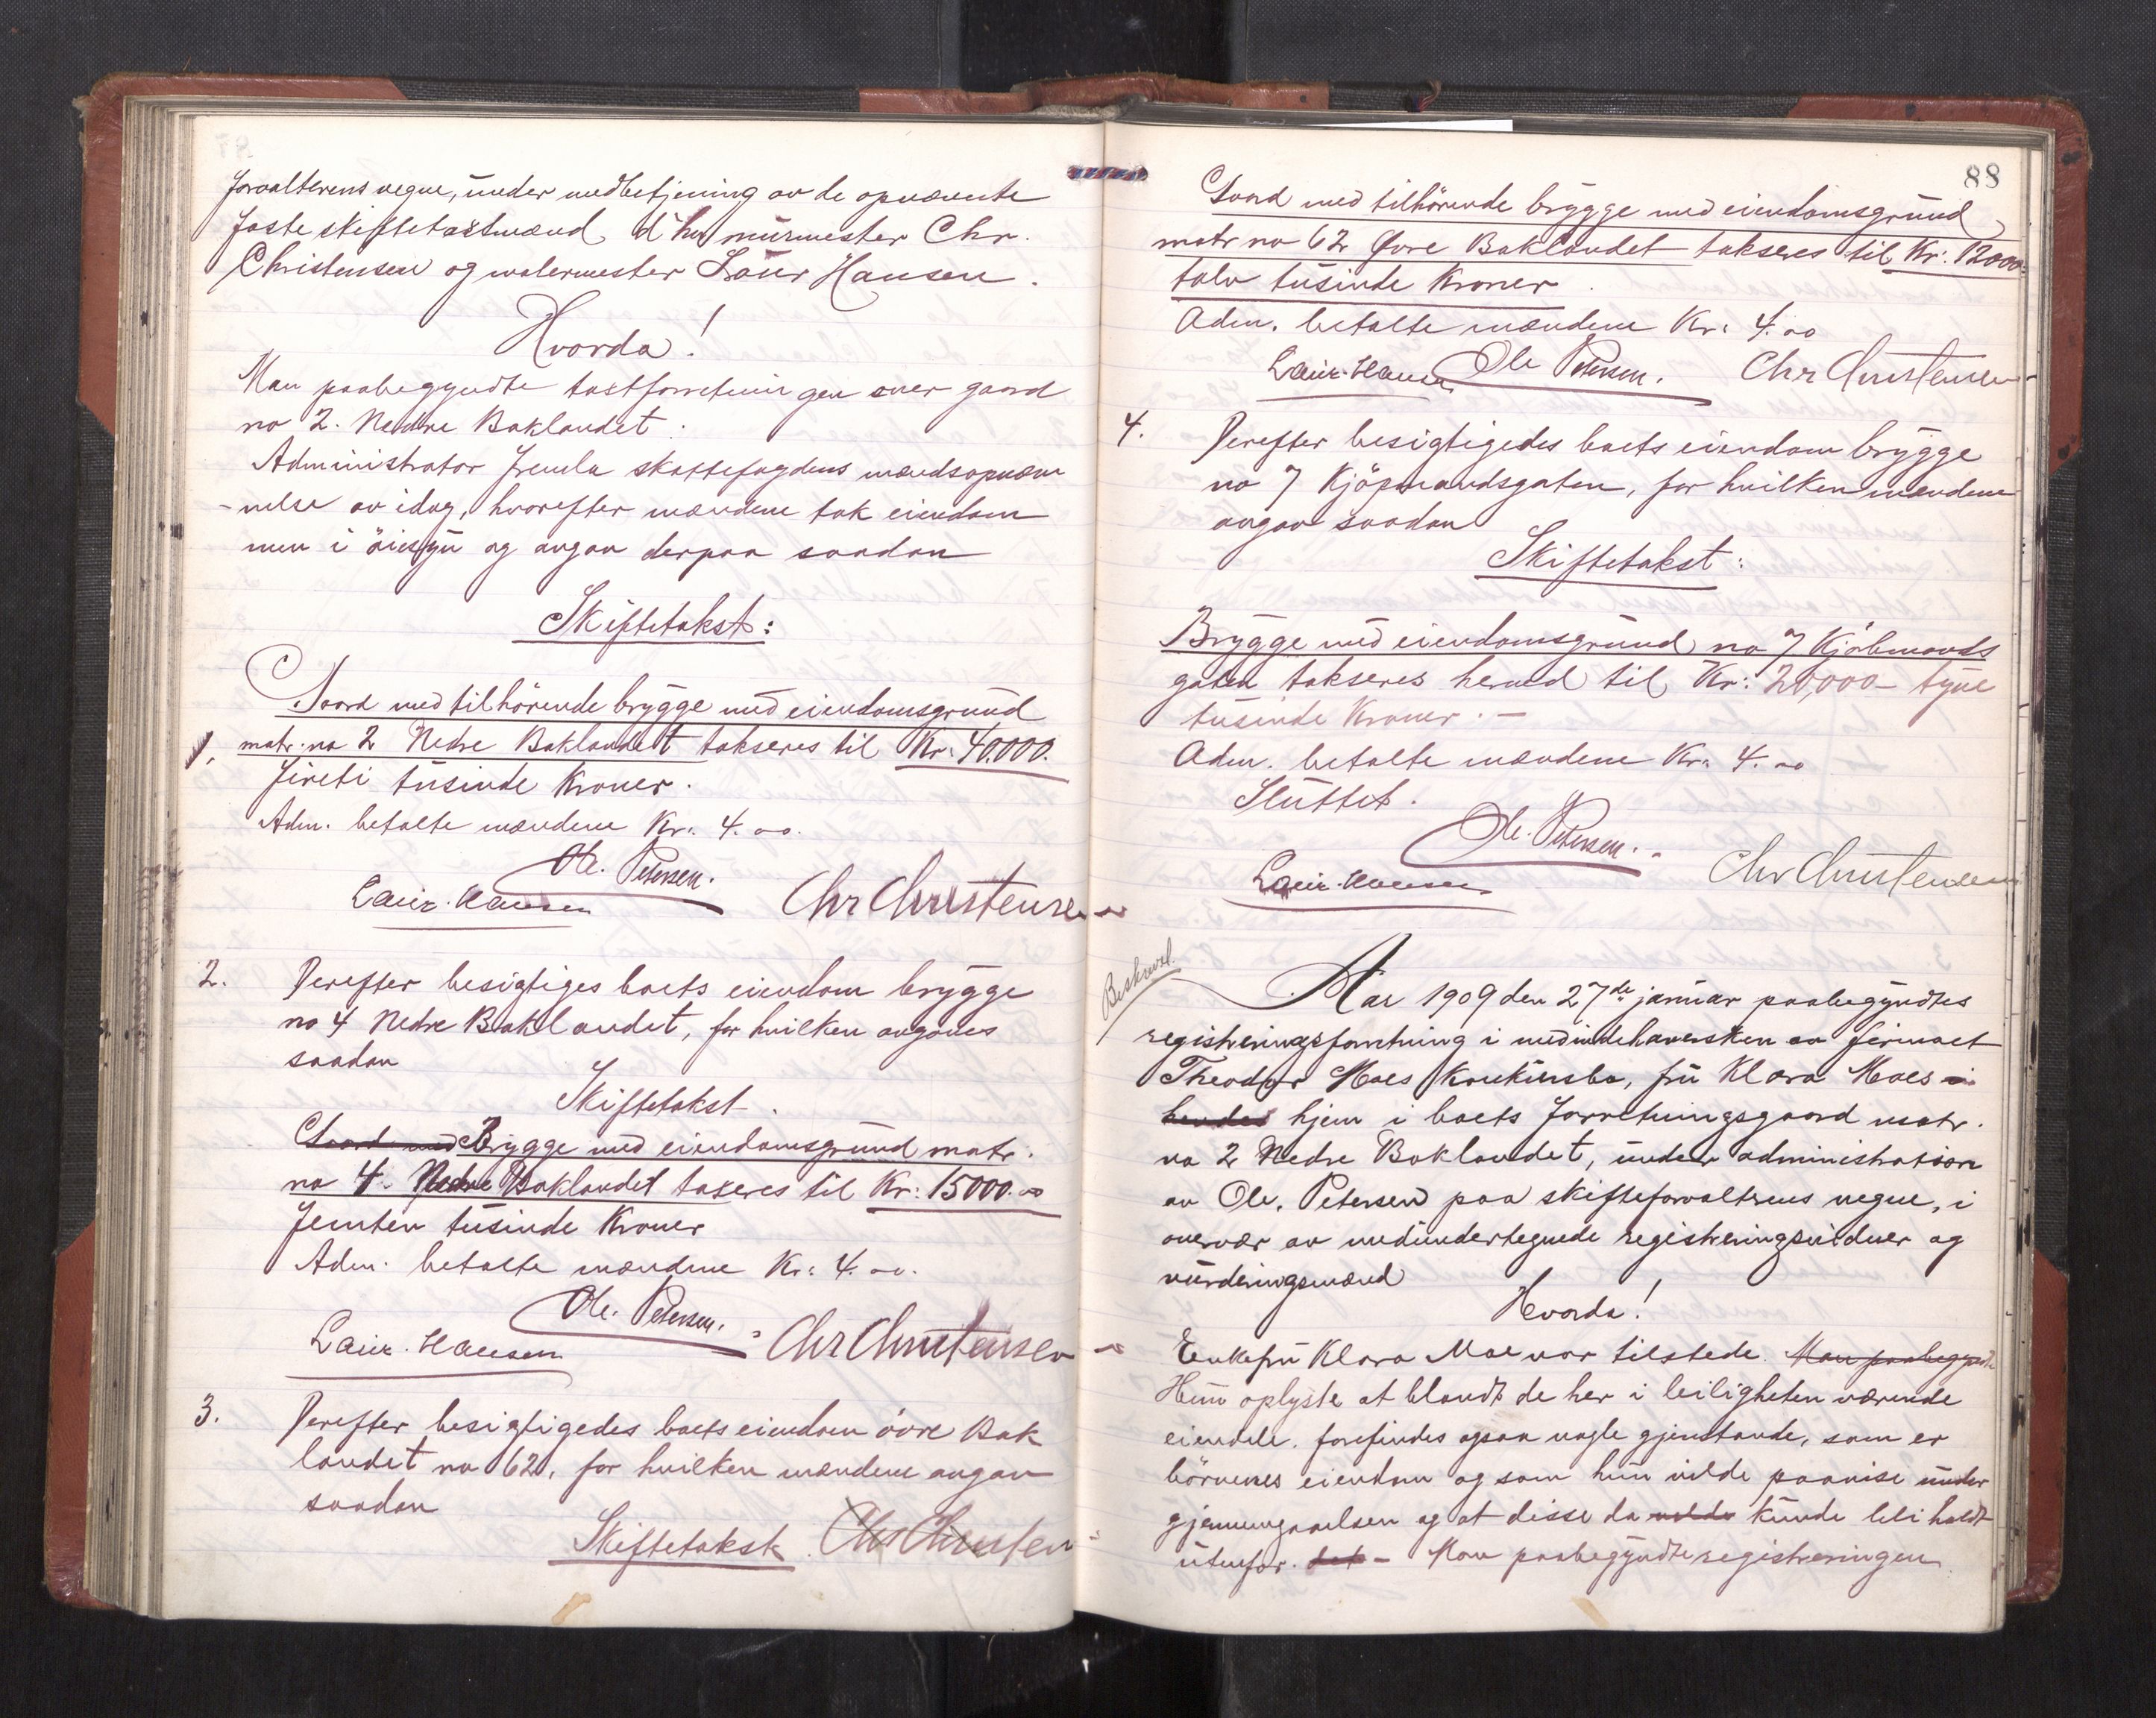 forvalterens vegne, under medbetjening av de opnævnte
faste skiftetaxtmænd d'hrr murmester Chr.
Christensen og malermester Laur Hansen.
Hvorda!
Man paabegyndte taxtforretningen over gaard
no 2. Nedre Baklandet.
Administrator fremla skattefogdens mændsopnæv
-nelse av idag, hvorefter mændene tok eiendom
men i öiesyn og avgav derpaa saadan
Skiftetakst:
Gaard med tilhörende brygge med eiendomsgrund
1. matr. no 2 Nedre Baklandet takseres til Kr: 40.000.
firti tusinde Kroner.
Adm. betalte mændene Kr: 4.00.
Ole. Petersen.
Laur. Hansen Chr Christensen
2. Derefter besigtiges boets eiendom brygge
no 4 Nedre Baklandet, for hvilken avgaves
saadan
Skiftetakst.
Gaard med Brygge med eiendomsgrund matr.
no 4. Nedre Baklandet taxeres til Kr: 15000.00
femten tusinde Kroner
Adm. betalte mændene Kr: 4.00.
Ole. Petersen.
Laur. Hansen Chr Christensen
3. Derefter besigtigedes boets eiendom övre Bak
landet no 62, for hvilken mændene avgav
saadan
Skiftetakst. Chr Christen
88
Gaard med tilhörende brygge med eiendomsgrund
matr no 62 Øvre Baklandet takseres til Kr: 12000.
tolv tusinde Kroner.
Adm. betalte mændene Kr: 4.00
Laur. Hansen Ole Petersen. Chr Christensen
4. Derefter besigtigedes boets eiendom brygge
no 7 Kjöpmandsgaten, for hvilken mændene
avgav saadan
Skiftetakst:
Brygge med eiendomsgrund no 7 Kjöbmands
gaten takseres herved til Kr: 20,000 - tyve
tusinde Kroner. -
Adm. betalte mændene Kr: 4.00
Sluttet.
Ole. Petersen.
Laur. Hansen Chr Christensen
Beskrevet.
Aar 1909 den 27de januar paabegyndtes
registreringsforretning i medindehaversken av firmaet
Theodor Moes Konkursbo, fru Klara Moes i
hendes hjem i boets forretningsgaard matr.
no 2 Nedre Baklandet, under administration
av Ole. Petersen paa skifteforvalterens vegne, i
overvær av medundertegnede registreringsvidner og
vurderingsmænd
Hvorda!
Enkefru Klara Moe var tilstede. Man paabegyndte
Hun oplyste at blandt de her i leiligheten værende
eiendele. forefindes ogsaa nogle gjenstande, som er
börnenes eiendom og som hun vilde paavise under
gjennemgaaelsen og at disse da vilde kunde bli holdt
utenfor. det - Man paabegyndte registreringen